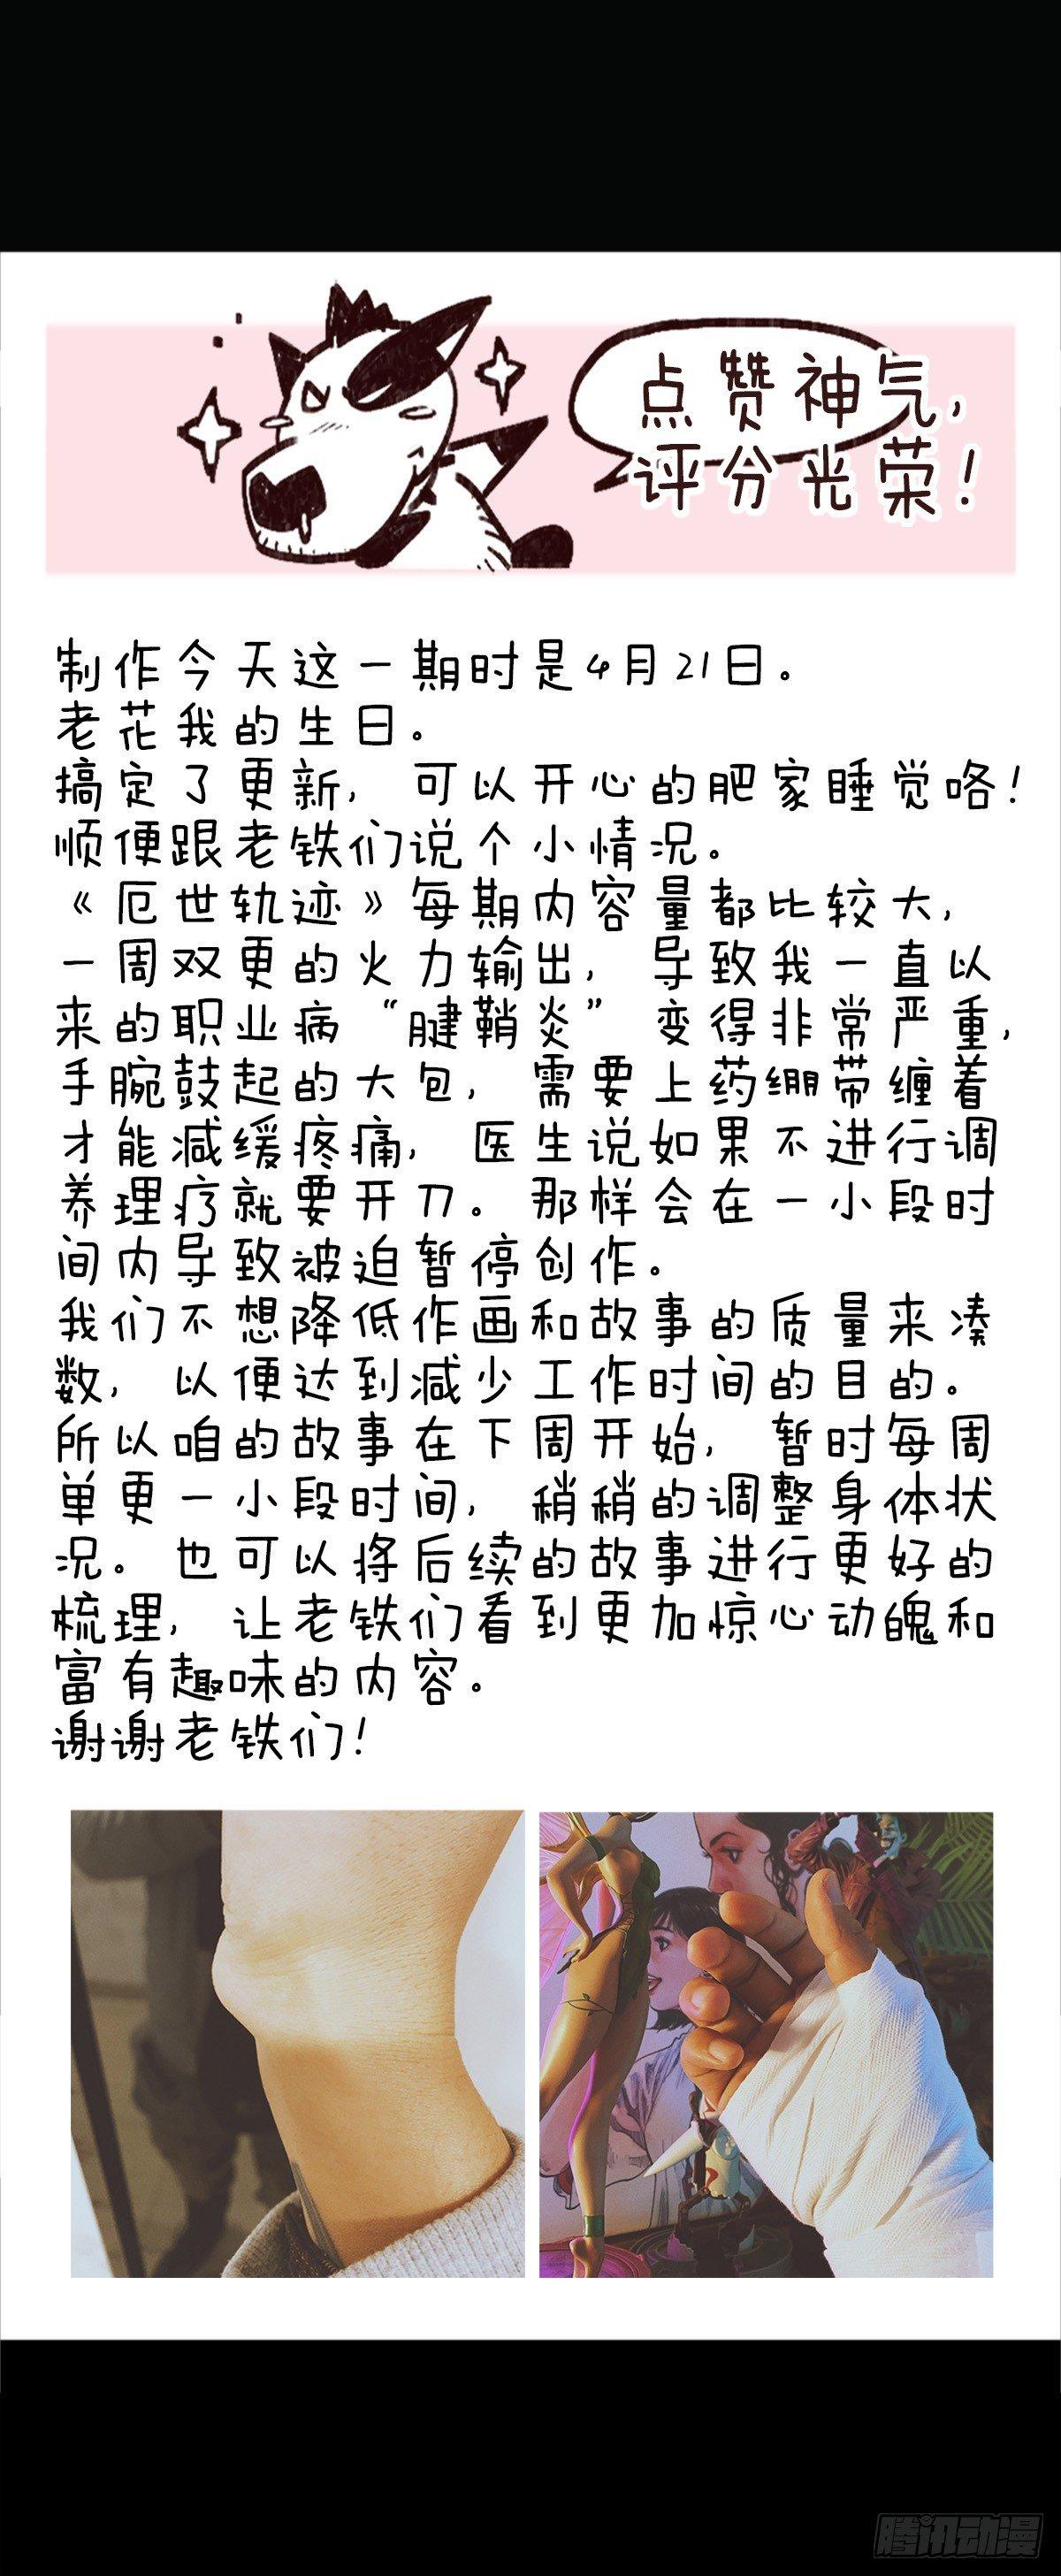 点赞神气，
评分光荣！
制作今天这一期时是4月21日。
老花我的生日。
搞定了更新，可以开心的肥家睡觉咯！
顺便跟老铁们说个小情况。
《厄世轨迹》每期内容量都比较大，
一周双更的火力输出，导致我一直以
来的职业病“腱鞘炎”变得非常严重，
手腕鼓起的大包，需要上药绷带缠着
才能减缓疼痛，医生说如果不进行调
养理疗就要开刀。那样会在一小段时
间内导致被迫暂停创作。
我们不想降低作画和故事的质量来凑
数，以便达到减少工作时间的目的。
所以咱的故事在下周开始，暂时每周
单更一小段时间，稍稍的调整身体状
况。也可以将后续的故事进行更好的
梳理，让老铁们看到更加惊心动魄和
富有趣味的内容。
谢谢老铁们！
腾讯动漫